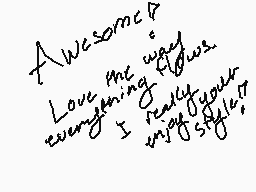 Awesome!?
Love the way
everything flows.
I really
enjoy your
style!?